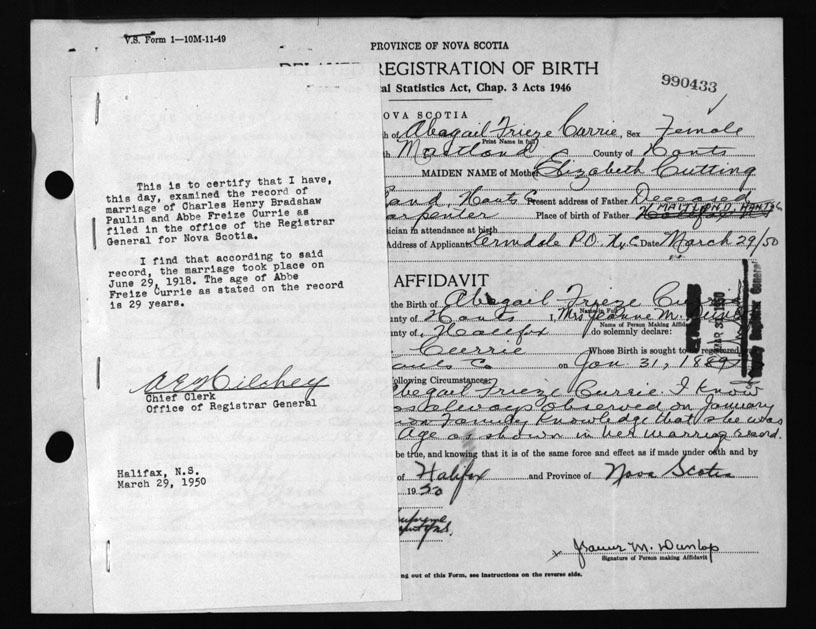 V.S. Form 1—10M-11-49
PROVINCE OF NOVA SCOTIA
REGISTRATION OF BIRTH
990433
al Statistics Act, Chap. 3 Acts 1946
NOVA SCOTIA
of Abagail Frieze Currie, Sex Female
Print Name in full
Maitland County of Hants
MAIDEN NAME of Mother Elizabeth Cutting
and, Hants C Present address of Father Deceased
MAITLAND, HANTS Co
arpenter Place of birth of Father Halifax
sician in attendance at birth
Address of Applicant Armdale P.O. Hx. C. Date March 29/50
This is to certify that I have,
this day, examined the record of
marriage of Charles Henry Bradshaw
Paulin and Abbe Freize Currie as
filed in the office of the Registrar
General for Nova Scotia.
I find that according to said
record, the marriage took place on
June 29, 1918. The age of Abbe
Freize Currie as stated on the record
is 29 years.
Chief Clerk
Office of Registrar General
Halifax, N.S.
March 29, 1950
AFFIDAVIT
the Birth of Abagail Frieze Currie
Name in Full
ty of Hants I, Mrs. Jeanne M. Dunlop
Name of Person Making Affidavit
unty of Halifax do solemnly declare:
Currie Whose Birth is sought to registered
on Jan. 31, 1889
ollowing Circumstances:
Abegail Frieze Currie. I know
always observed on January
Family Knowledge that she was
Age as shown in her marriage record.
be true, and knowing that it is of the same force and effect as if made under oath and by
of Halifax and Province of Nova Scotia
1950
Supreme
M. Dunlop
Signature of Person making Affidavit
ng out of this Form, see instructions on the reverse side.